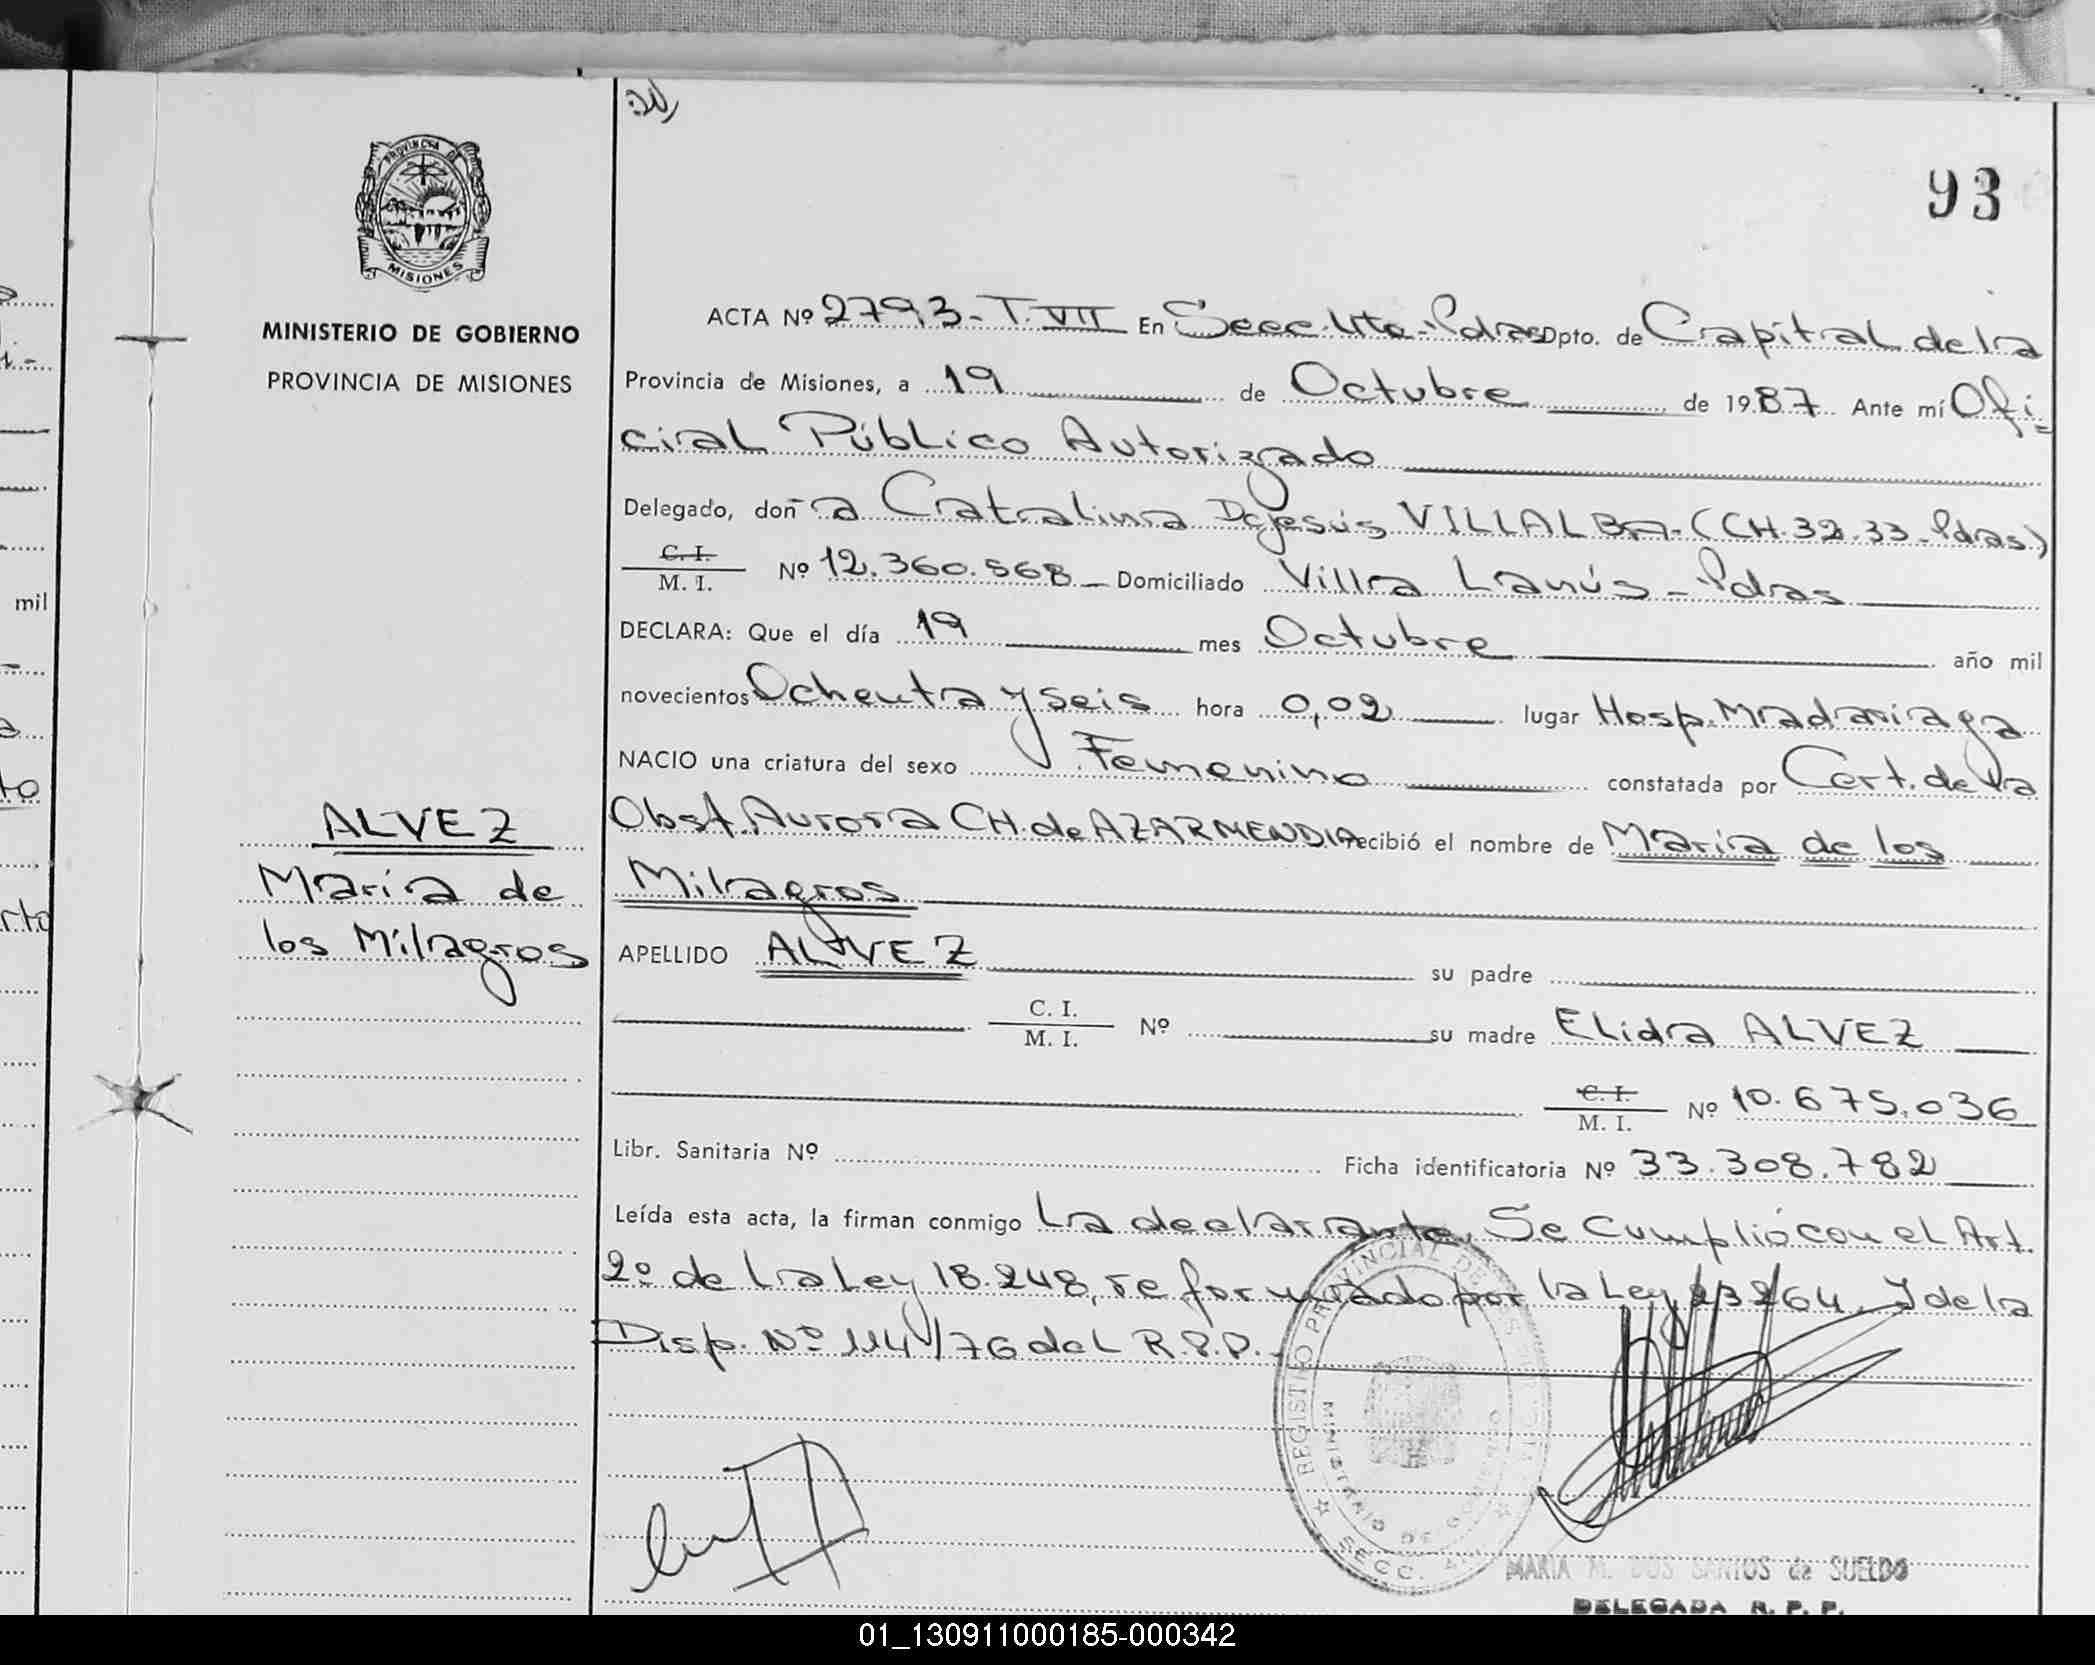 93
PROVINCIA DE
MISIONES
MINISTERIO DE GOBIERNO
PROVINCIA DE MISIONES
ALVEZ
María de
los Milagros
ACTA Nº 2793-T.VII En Secc.4ta-Pdas Dpto. de Capital de la
Provincia de Misiones, a 19 de Octubre de 1987 Ante mí Ofi-
cial Público Autorizado
Delegado, doña Catalina Dejesús VILLALBA-(CH.32.33-Pdas.)
C. I.
M. I. Nº 12.360.568 - Domiciliado Villa Lanús - Pdas
DECLARA: Que el día 19 mes Octubre año mil
novecientos Ochenta y seis hora 0,02 lugar Hosp. Madariaga
NACIO una criatura del sexo Femenino constatada por Cert. de la
Obst. Aurora CH. de AZARMENDIA recibió el nombre de María de los
Milagros
APELLIDO ALVEZ su padre
C. I.
M. I. Nº su madre Elida ALVEZ
C. I.
M. I. Nº 10.675.036
Libr. Sanitaria Nº Ficha identificatoria Nº 33.308.782
Leída esta acta, la firman conmigo La declarante. Se Cumplió con el Art.
2º de la Ley 18.248, reformado por la Ley 23264. Y de la
Disp. Nº 114/76 del R.P.P.-
REGISTRO PROVINCIAL DE LAS
MINISTERIO DE GOBIERNO
SECC.
MARIA M. DOS SANTOS de SUELDO
DELEGADA R. P. P.
mil
01_130911000185-000342